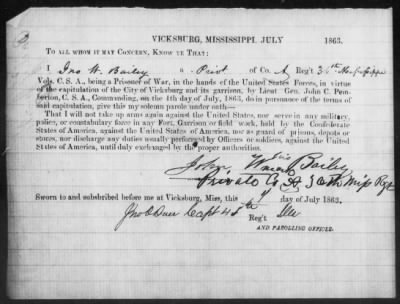 VICKSBURG, MISSISSIPPI, JULY 1863.
TO ALL WHOM IT MAY CONCERN, KNOW YE THAT:
I Jno W. Bailey a Privt of Co. A Reg't 36th Mississippi
Vols. C. S. A., being a Prisoner of War, in the hands of the United States Forces, in virtue
of the capitulation of the City of Vicksburg and its garrison, by Lieut. Gen. John C. Pem-
berton, C. S. A., Commanding, on the 4th day of July, 1863, do in pursuance of the terms of
said capitulation, give this my solemn parole under oath—
That I will not take up arms again against the United States, nor serve in any military,
police, or constabulary force in any Fort, Garrison or field work, held by the Confederate
States of America, against the United States of America, nor as guard of prisons, depots or
stores, nor discharge any duties usually performed by Officers or soldiers, against the United
States of America, until duly exchanged by the proper authorities.
his
John W Bailey
mark
Private Co A 36th Miss Regt
Sworn to and subscribed before me at Vicksburg, Miss, this 9th day of July 1863.
Capt 45 Reg't Ills
AND PAROLLING OFFICER.